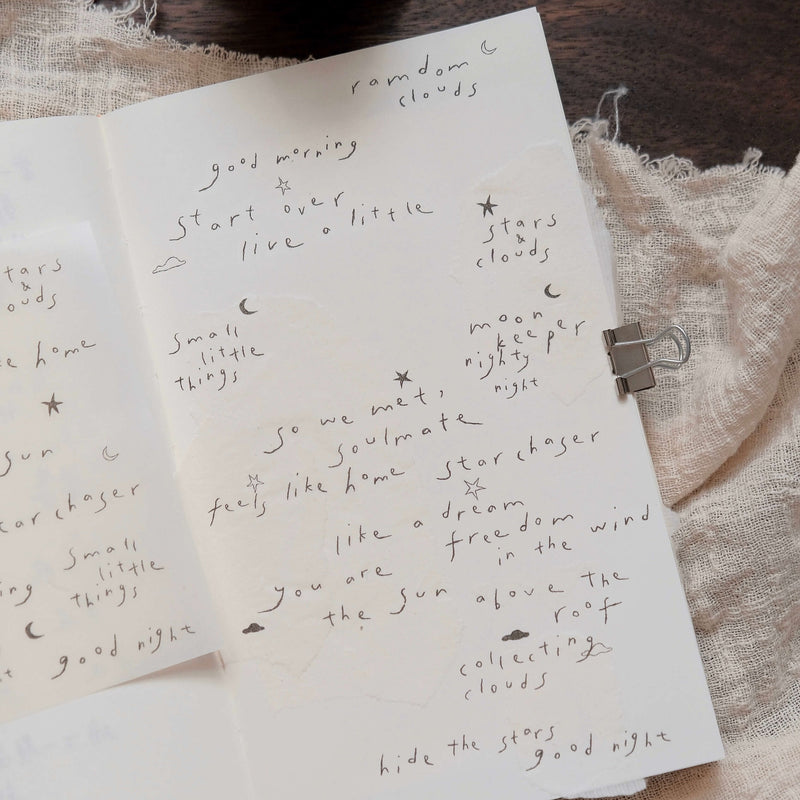 ramdom
clouds
good morning
start over
live a little
stars
&
clouds
small
little
things
moon
keeper
nighty
night
so we met,
soulmate
feels like home
star chaser
like a dream
freedom
in the wind
you are
the sun above the
roof
collecting
clouds
hide the stars
good night
tars
&
ouds
e home
sun
tar chaser
small
little
things
ing
good night